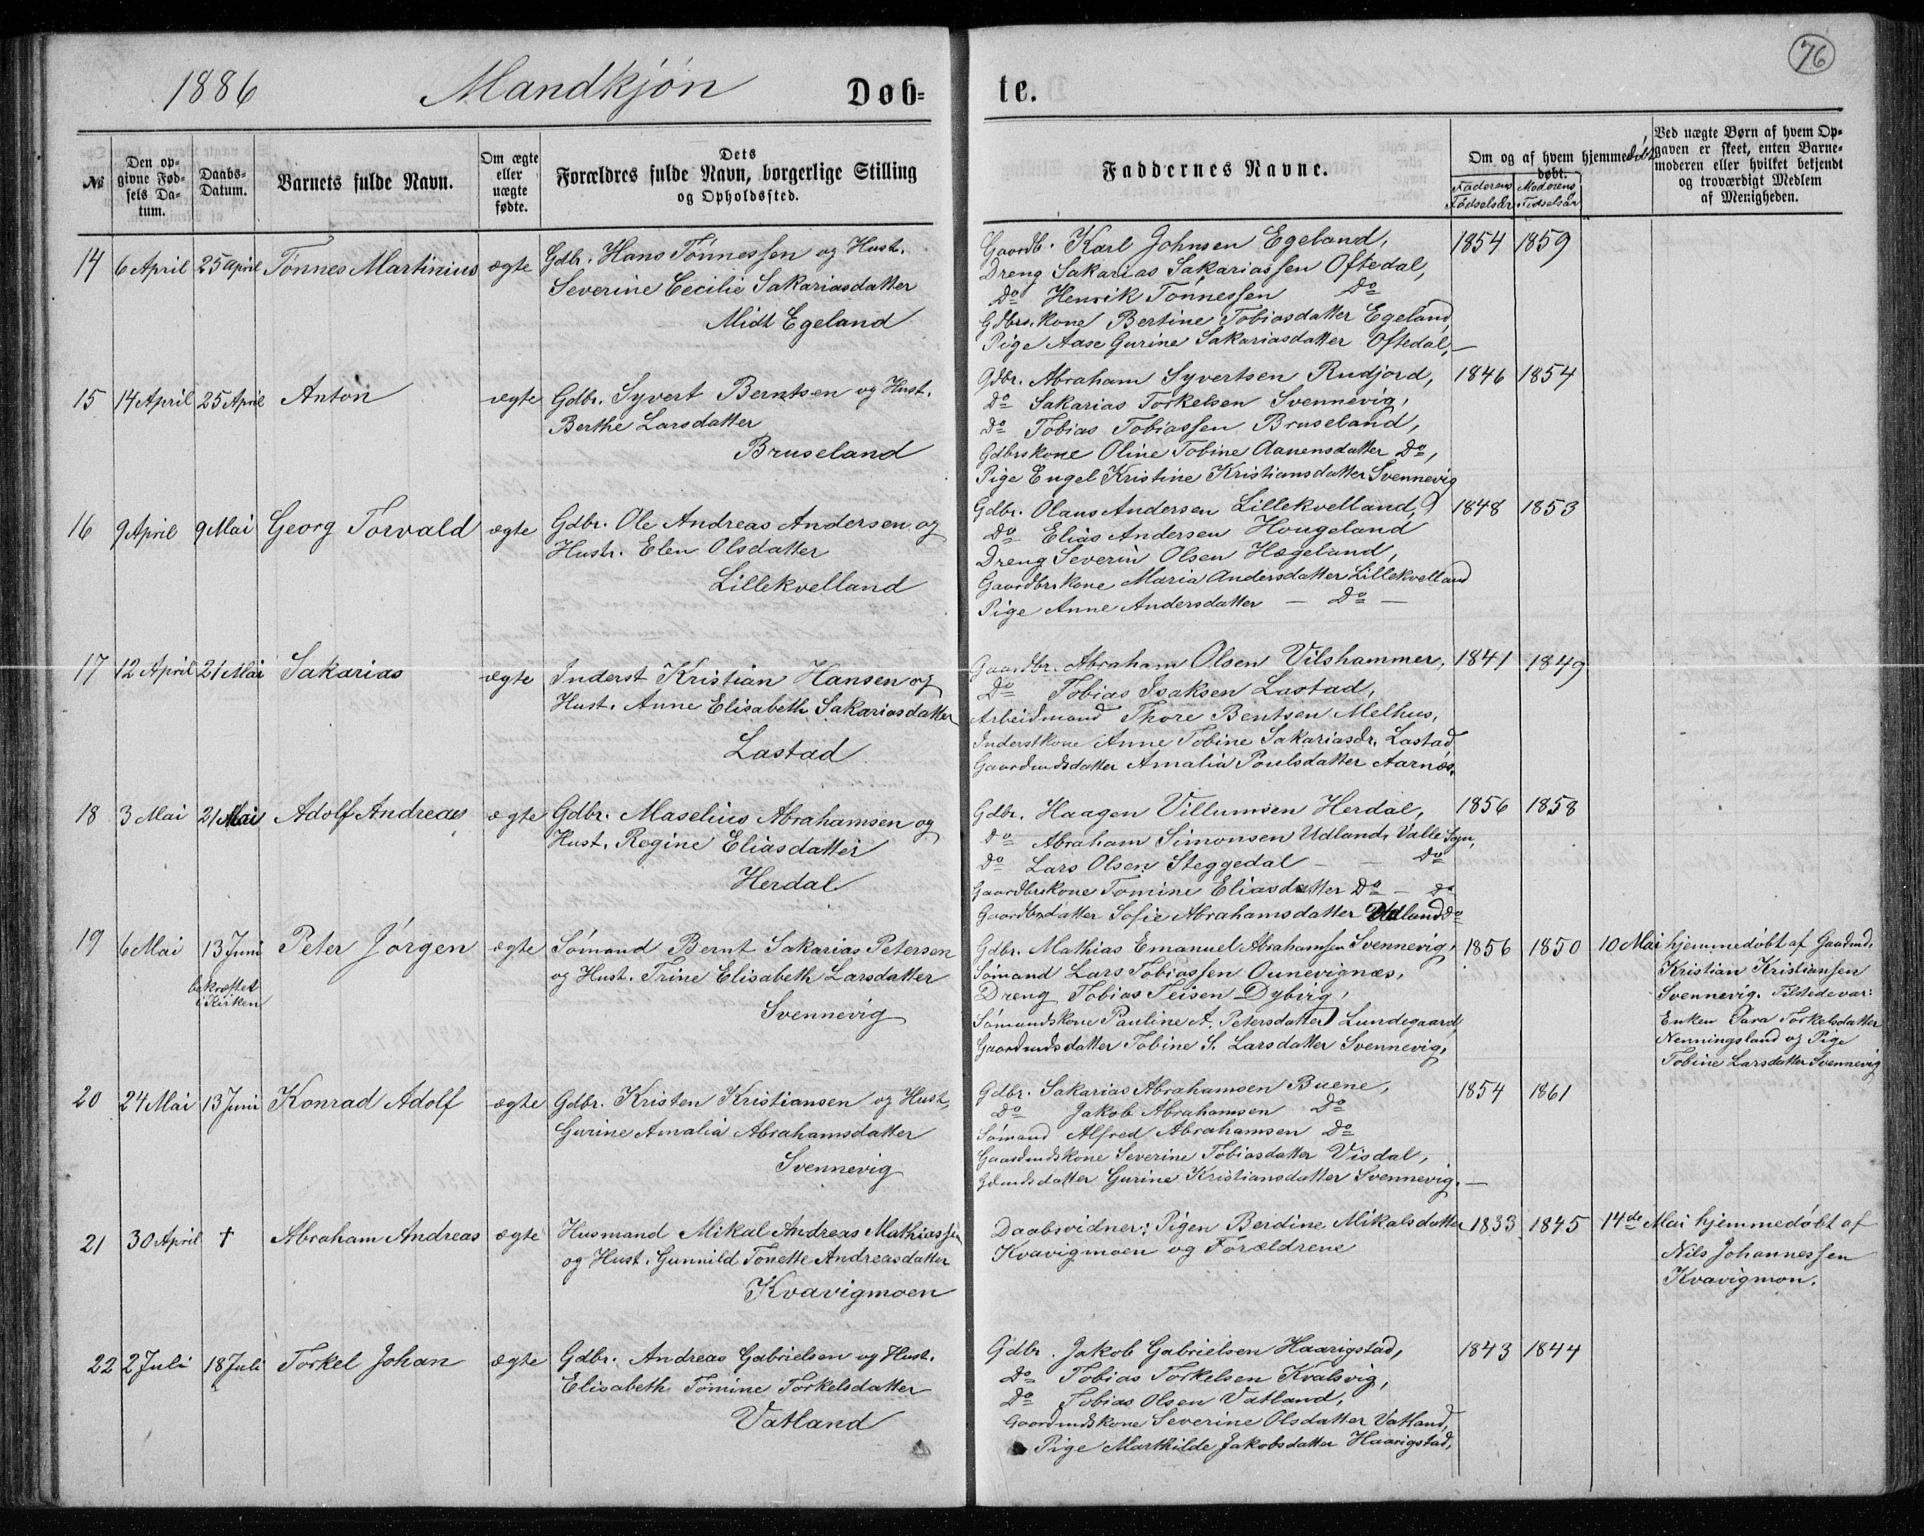 76
1886 Mandkjøn Døb-te.
№
Den op-
givne Fød-
sels Da-
tum.
Daabs-
Datum.
Barnets fulde Navn.
Om ægte
eller
uægte
fødte.
Dets
Forældres fulde Navn, borgerlige Stilling
og Opholdssted.
Faddernes Navne.
Om og af hvem hjemmedøbt
døbt.
Faderens
Fødselsår
Moderens
Fødselsår
Ved uægte Børn af hvem Op-
gaven er skeet, enten Barne-
moderen eller hvilket bekjendt
og troværdigt Medlem
af Menigheden.
14 6 April 25 April Tønnes Martinius ægte
Gdbr. Hans Tønnessen og Hust.
Severine Cecilie Sakariasdatter
Midt Egeland
Gaardb. Karl Johnsen Egeland,
Dreng Sakarias Sakariassen Oftedal,
Do Henrik Tønnessen Do
Gdbrs.kone Bertine Tobiasdatter Egeland
Pige Aase Gurine Sakariasdatter Oftedal,—
1854 1859
15 14 April 25 April Anton ægte
Gdbr. Syvert Berntsen og Hust.
Berthe Larsdatter
Bruseland
Gdbr. Abraham Syvertsen Rudjord,
Do Sakarias Torkelsen Svennevig,
Do Tobias Tobiassen Bruseland,
Gdbrskone Oline Tobine Aanensdatter Do,
Pige Engel Kristine Kristiansdatter Svennevig
1846 1854
16 9 April 9 Mai Georg Torvald ægte
Gdbr. Ole Andreas Andersen og
Hustr. Elen Olsdatter
Lillekvelland
Gdbr. Olaus Andersen Lillekvelland,
Do Elias Andersen Hougeland
Dreng Severin Olsen Hægeland,
Gaardbrskone Maria Andersdatter Lillekvelland
Pige Anne Andersdatter — Do —
1848 1853
17 12 April 21 Mai Sakarias ægte
Inderst Kristian Hansen og
Hust. Anne Elisabeth Sakariasdatter
Lastad
Gaardbr. Abraham Olsen Vilshammer,
Do Tobias Isaksen Lastad,
Arbeidmand Thore Bentsen Melhus,
Inderstkone Anne Tobine Sakariasdr. Lastad
Gaardmdsdatter Amalia Poulsdatter Aarnes.
1841 1849
18 3 Mai 21 Mai Adolf Andreas ægte
Gdbr. Maselius Abrahamsen og
Hust. Regine Eliasdatter
Herdal
Gdbr. Haagen Villumsen Herdal,
Do Abraham Simonsen Udland, Valle Sogn,
Do Lars Olsen Steggedal — — Do
Gaardbrskone Tomine Eliasdatter Do — Do
Gaardbrdatter Sofie Abrahamsdatter Udland Do
1856 1858
19 6 Mai 13 Juni
bekræftet
i Kirken
Peter Jørgen ægte
Sømand Bernt Sakarias Petersen
og Hust. Trine Elisabeth Larsdatter
Svennevig
Gdbr. Mathias Emanuel Abrahamsen Svennevig,
Sømand Lars Tobiassen Ounevignæs,
Dreng Tobias Teisen Dybvig,
Sømandskone Pauline A. Petersdatter Lundegaard,
Gaardmdsdatter Tobine S. Larsdatter Svennevig,
1856 1850
10 Mai hjemmedøbt af Gaadmd.
Kristian Kristiansen
Svennevig. Tilstede var:
Enken Sara Torkelsdatter
Nenningsland og Pige
Tobine Larsdatter Svennevig
20 24 Mai 13 Juni Konrad Adolf ægte
Gdbr. Kristen Kristiansen og Hust,
Gurine Amalia Abrahamsdatter
Svennevig
Gdbr. Sakarias Abrahamsen Buene,
Do Jakob Abrahamsen Do
Sømand Alfred Abrahamsen Do
Gaardmdskone Severine Tobiasdatter Visdal,
Gdmdsdatter Gurine Kristiansdatter Svennevig.—
1854 1861
21 30 April † Abraham Andreas ægte
Husmand Mikal Andreas Mathiassen
og Hust. Gunnild Tonette Andreasdatter
Kvavigmoen
Daabsvidner: Pigen Berdine Mikalsdatter
Kvavigmoen og Forældrene
1833 1845
14de Mai hjemmedøbt af
Nils Johannessen
Kvavigmon.
22 2 Juli 18 Juli Torkel Johan ægte
Gdbr. Andreas Gabrielsen og Hust.
Elisabeth Tomine Torkelsdatter
Vatland
Gdbr. Jakob Gabrielsen Haarigstad,
Do Tobias Torkelsen Kvalsvig,
Do Tobias Olsen Vatland,
Gaardmdskone Severine Olsdatter Vatland,
Pige Marthilde Jakobsdatter Haarigstad,
1843 1844